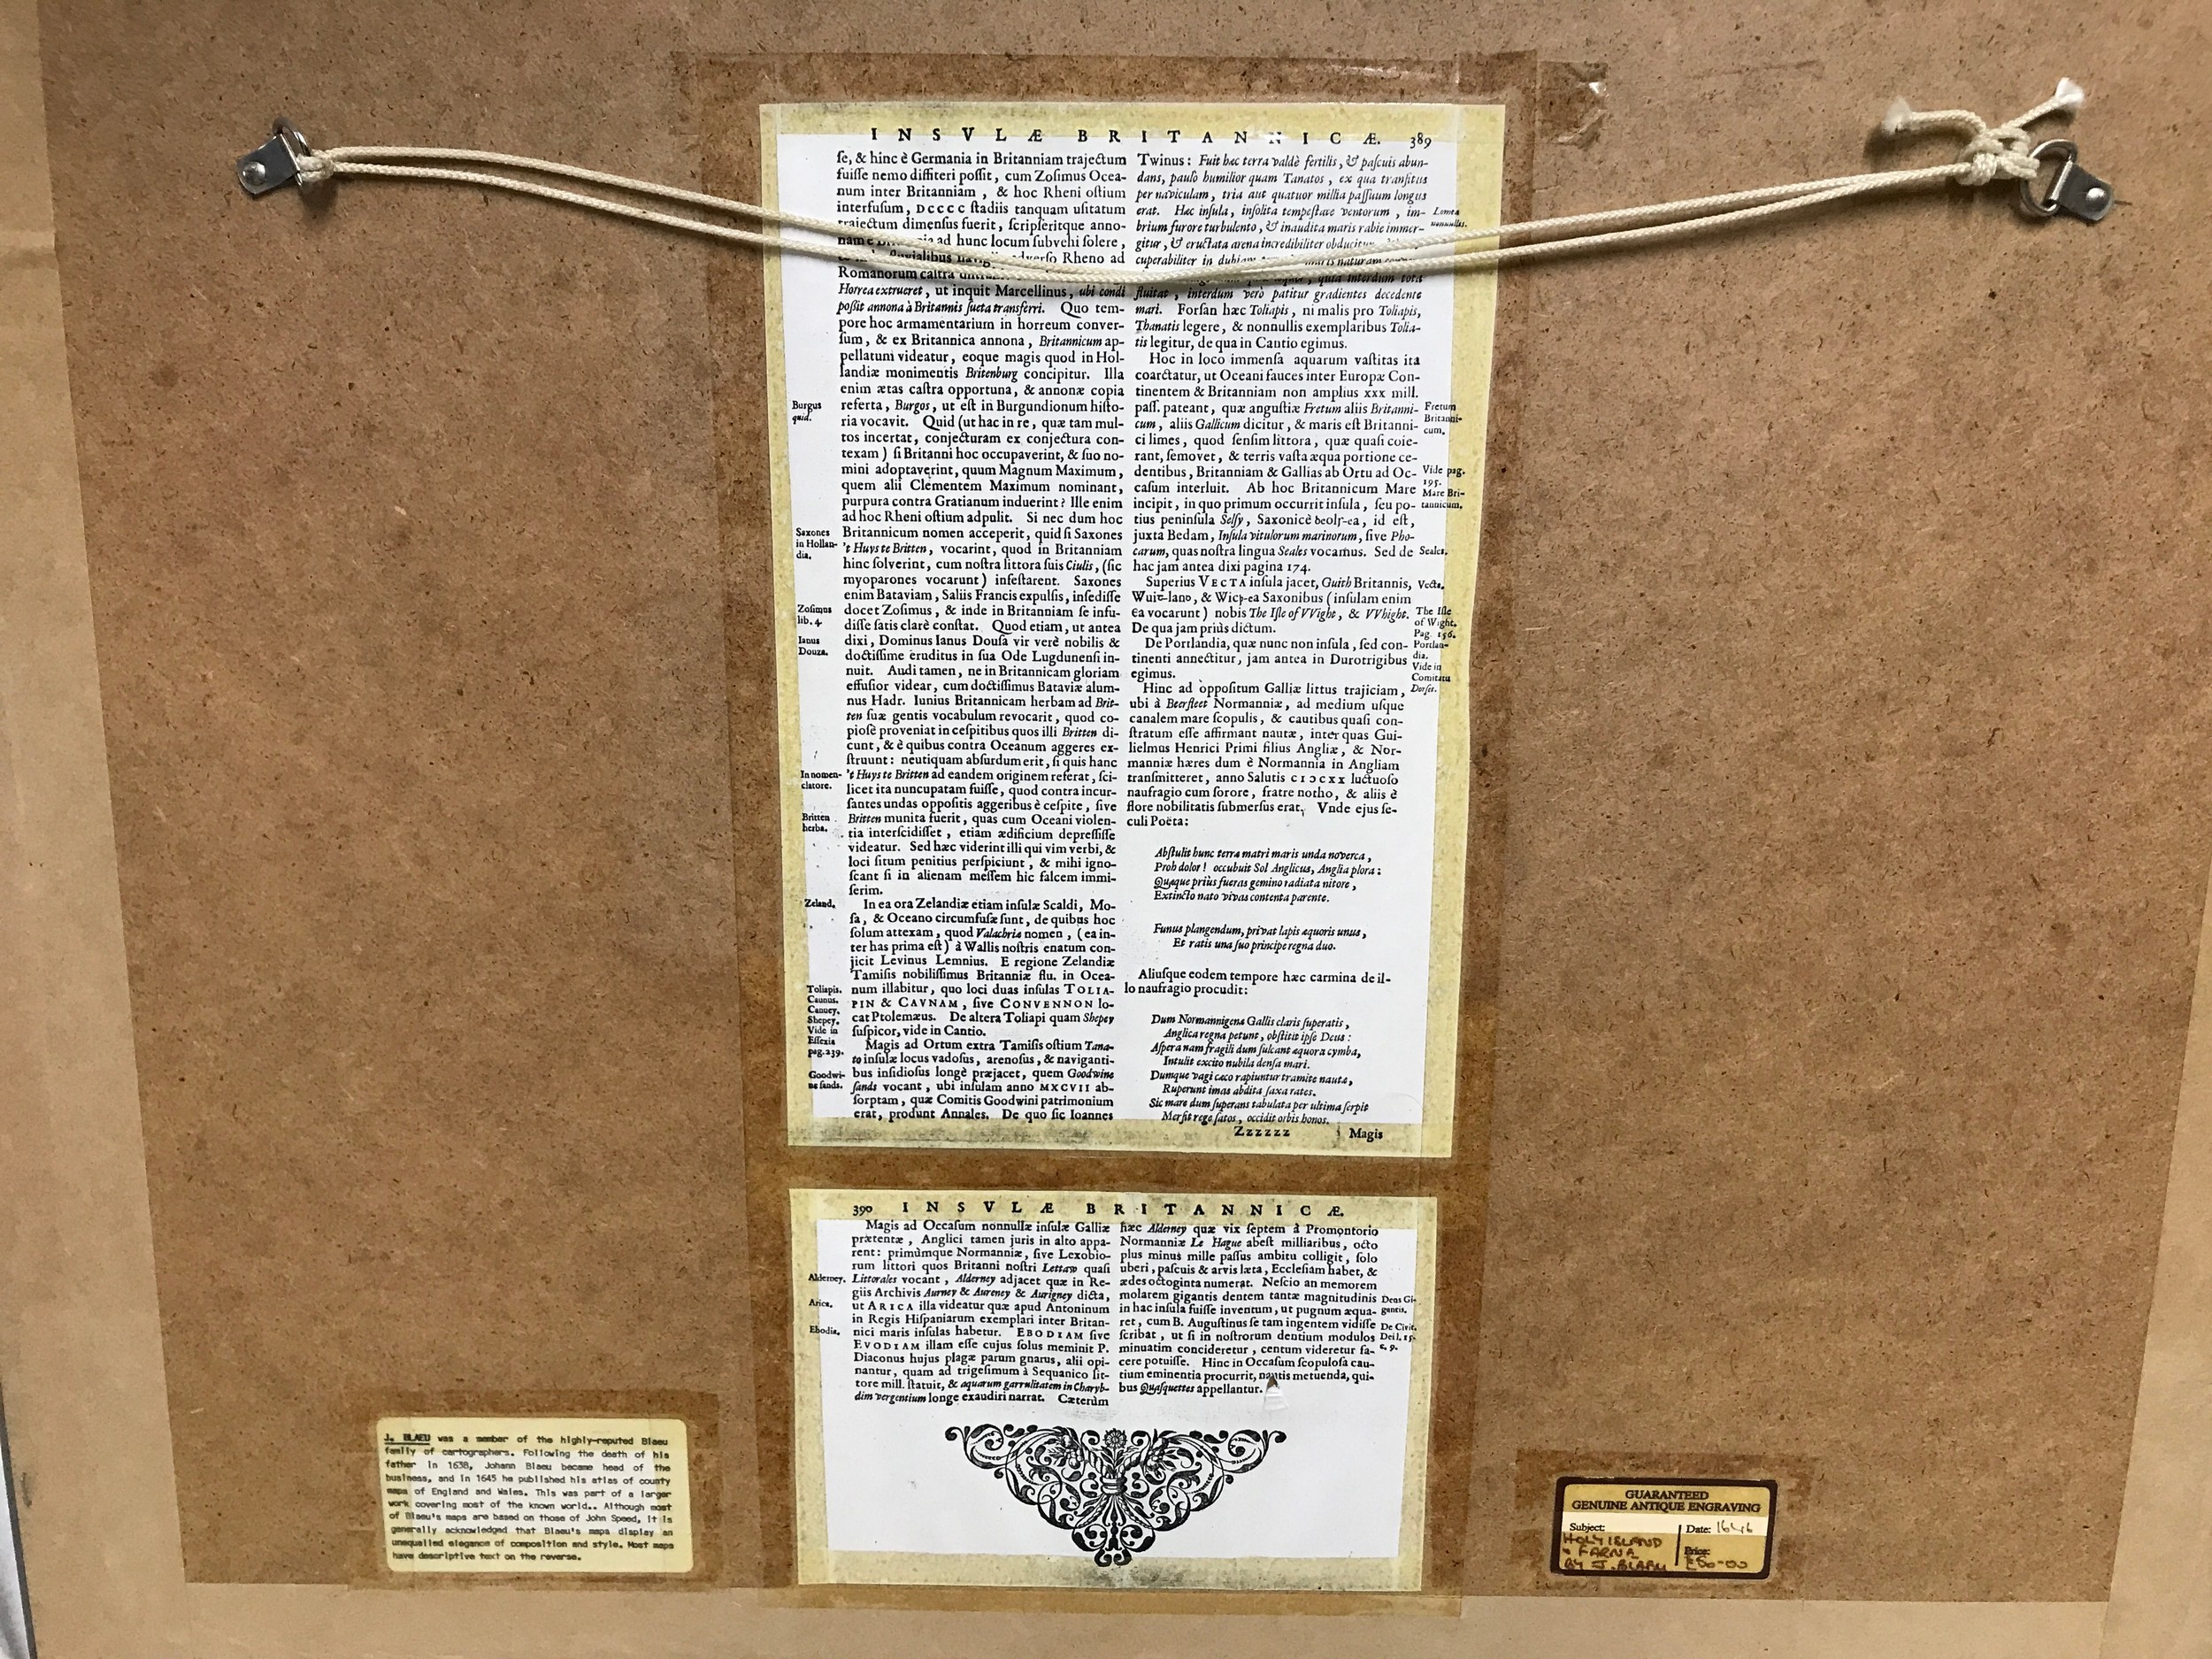 INSVLÆ BRITANNICÆ. 389
ſe, & hinc è Germania in Britanniam trajectum
fuiſſe nemo diffiteri poſſit, cum Zoſimus Ocea-
num inter Britanniam, & hoc Rheni oſtium
interfuſum, DCCCC ſtadiis tanquam uſitatum
traiectum dimenſus fuerit, ſcripſeritque anno-
ad hunc locum ſubvehi ſolere,
Rheno ad
Romanorum caſtra
Horrea extrueret, ut inquit Marcellinus, ubi condi
poſſit annona à Britannis ſueta transferri. Quo tem-
pore hoc armamentarium in horreum conver-
ſum, & ex Britannica annona, Britannicum ap-
pellatum videatur, eoque magis quod in Hol-
landiæ monimentis Britenburg concipitur. Illa
enim ætas caſtra opportuna, & annonæ copia
Burgus quid.
referta, Burgos, ut eſt in Burgundionum hiſto-
ria vocavit. Quid (ut hac in re, quæ tam mul-
tos incertat, conjecturam ex conjectura con-
texam) ſi Britanni hoc occupaverint, & ſuo no-
mini adoptaverint, quum Magnum Maximum,
quem alii Clementem Maximum nominant,
purpura contra Gratianum induerint? Ille enim
ad hoc Rheni oſtium adpulit. Si nec dum hoc
Saxones
in Hollan-
dia.
Britannicum nomen acceperit, quid ſi Saxones
't Huys te Britten, vocarint, quod in Britanniam
hinc ſolverint, cum noſtra littora ſuis Ciulis, (ſic
myoparones vocarunt) infeſtarent. Saxones
enim Bataviam, Saliis Francis expulſis, inſediſſe
Zoſimus
lib. 4.
docet Zoſimus, & inde in Britanniam ſe infu-
diſſe ſatis clarè conſtat. Quod etiam, ut antea
Ianus
Douza.
dixi, Dominus Ianus Douſa vir verè nobilis &
doctiſſime eruditus in ſua Ode Lugdunenſi in-
nuit. Audi tamen, ne in Britannicam gloriam
effuſior videar, cum doctiſſimus Bataviæ alum-
nus Hadr. Iunius Britannicam herbam ad Brit-
ten ſuæ gentis vocabulum revocarit, quod co-
pioſè proveniat in ceſpitibus quos illi Britten di-
cunt, & è quibus contra Oceanum aggeres ex-
ſtruunt: neutiquam abſurdum erit, ſi quis hanc
In nomen-
clatore.
't Huys te Britten ad eandem originem referat, ſci-
licet ita nuncupatam fuiſſe, quod contra incur-
ſantes undas oppoſitis aggeribus è ceſpite, ſive
Britten
herba.
Britten munita fuerit, quas cum Oceani violen-
tia interſcidiſſet, etiam ædificium depreſſiſſe
videatur. Sed hæc viderint illi qui vim verbi, &
loci ſitum penitius perſpiciunt, & mihi igno-
ſcant ſi in alienam meſſem hic falcem immi-
ſerim.
Zeland.
In ea ora Zelandiæ etiam inſulæ Scaldi, Mo-
ſa, & Oceano circumfuſæ ſunt, de quibus hoc
ſolum attexam, quod Valachriæ nomen, (ea in-
ter has prima eſt) à Wallis noſtris enatum con-
jicit Levinus Lemnius. E regione Zelandiæ
Tamiſis nobiliſſimus Britanniæ flu. in Ocea-
Toliapis.
Caunus.
Canuey.
Shepey.
Vide in
Eſſexia
pag. 239.
num illabitur, quo loci duas inſulas TOLIA-
PIN & CAVNAM, ſive CONVENNON lo-
cat Ptolemæus. De altera Toliapi quam Shepey
ſuſpicor, vide in Cantio.
Magis ad Ortum extra Tamiſis oſtium Tana-
to inſulæ locus vadoſus, arenoſus, & naviganti-
Goodwi-
ne ſands.
bus inſidioſus longè præjacet, quem Goodwine
ſands vocant, ubi inſulam anno MXCVII ab-
ſorptam, quæ Comitis Goodwini patrimonium
erat, produnt Annales. De quo ſic Ioannes
Twinus: Fuit hæc terra valdè fertilis, & paſcuis abun-
dans, paulò humilior quam Tanatos, ex qua tranſitus
per naviculam, tria aut quatuor millia paſſuum longus
erat. Hæc inſula, inſolita tempeſtate ventorum, im-
Lomea
nonnullis.
brium furore turbulento, & inaudita maris rabie immer-
gitur, & eructata arena incredibiliter obducitur
cuperabiliter in dubiam maris naturam
quia interdum tota
fluitat, interdum verò patitur gradientes decedente
mari. Forſan hæc Toliapis, ni malis pro Toliapis,
Thanatis legere, & nonnullis exemplaribus Tolia-
tis legitur, de qua in Cantio egimus.
Hoc in loco immenſa aquarum vaſtitas ita
coarctatur, ut Oceani fauces inter Europæ Con-
tinentem & Britanniam non amplius XXX mill.
Fretum
Britanni-
cum.
paſſ. pateant, quæ anguſtiæ Fretum aliis Britanni-
cum, aliis Gallicum dicitur, & maris eſt Britanni-
ci limes, quod ſenſim littora, quæ quaſi coie-
rant, ſemovet, & terris vaſta æqua portione ce-
Vide pag.
195.
Mare Bri-
tannicum.
dentibus, Britanniam & Gallias ab Ortu ad Oc-
caſum interluit. Ab hoc Britannicum Mare
incipit, in quo primum occurrit inſula, ſeu po-
tius peninſula Selſy, Saxonicè Seolꞅ-ea, id eſt,
juxta Bedam, Inſula vitulorum marinorum, ſive Pho-
Seales.
carum, quas noſtra lingua Seales vocamus. Sed de
hac jam antea dixi pagina 174.
Vecta.
Superius VECTA inſula jacet, Guith Britannis,
& Saxonibus (inſulam enim
The Iſle
of Wight.
Pag. 156.
ea vocarunt) nobis The Iſle of VVight, & VVhight.
De qua jam priùs dictum.
Portlan-
dia.
Vide in
Comitatu
Dorſet.
De Portlandia, quæ nunc non inſula, ſed con-
tinenti annectitur, jam antea in Durotrigibus
egimus.
Hinc ad oppoſitum Galliæ littus trajiciam,
ubi à Beerfleet Normanniæ, ad medium uſque
canalem mare ſcopulis, & cautibus quaſi con-
ſtratum eſſe affirmant nautæ, inter quas Gui-
lielmus Henrici Primi filius Angliæ, & Nor-
manniæ hæres dum è Normannia in Angliam
tranſmitteret, anno Salutis CIↃCXX luctuoſo
naufragio cum ſorore, fratre notho, & aliis è
flore nobilitatis ſubmerſus erat. Vnde ejus ſe-
culi Poëta:
Abſtulit hunc terræ matri maris unda noverca,
Proh dolor! occubuit Sol Anglicus, Anglia plora:
Quæque priùs fueras gemino radiata nitore,
Extincto nato vivas contenta parente.
Funus plangendum, privat lapis æquoris unus,
Et ratis una ſuo principe regna duo.
Aliuſque eodem tempore hæc carmina de il-
lo naufragio procudit:
Dum Normannigenæ Gallis claris ſuperatis,
Anglica regna petunt, obſtitit ipſe Deus:
Aſpera nam fragili dum ſulcant æquora cymba,
Intulit excito nubila denſa mari.
Dumque vagi cæco rapiuntur tramite nautæ,
Ruperunt imas abdita ſaxa rates.
Sic mare dum ſuperans tabulata per ultima ſerpit
Merſit rege ſatos, occidit orbis honos.
Zzzzzz Magis
390 INSVLÆ BRITANNICÆ.
Magis ad Occaſum nonnullæ inſulæ Galliæ
prætentæ, Anglici tamen juris in alto appa-
rent: primùmque Normanniæ, ſive Lexobio-
rum littori quos Britanni noſtri Lettaw quaſi
Alderney.
Littorales vocant, Alderney adjacet quæ in Re-
giis Archivis Aurney & Aureney & Aurigney dicta,
Arica.
ut ARICA illa videatur quæ apud Antoninum
in Regis Hiſpaniarum exemplari inter Britan-
Ebodia.
nici maris inſulas habetur. EBODIAM ſive
EVODIAM illam eſſe cujus ſolus meminit P.
Diaconus hujus plagæ parum gnarus, alii opi-
nantur, quam ad trigeſimum à Sequanico lit-
tore mill. ſtatuit, & aquarum garrulitatem in Charyb-
dim vergentium longe exaudiri narrat. Cæterùm
hæc Alderney quæ vix ſeptem à Promontorio
Normanniæ Le Hague abeſt milliaribus, octo
plus minus mille paſſus ambitu colligit, ſolo
uberi, paſcuis & arvis læta, Eccleſiam habet, &
ædes octoginta numerat. Neſcio an memorem
Dens Gi-
gantis.
molarem gigantis dentem tantæ magnitudinis
in hac inſula fuiſſe inventum, ut pugnum æqua-
De Civit.
Dei l. 15.
c. 9.
ret, cum B. Auguſtinus ſe tam ingentem vidiſſe
ſcribat, ut ſi in noſtrorum dentium modulos
minuatim concideretur, centum videretur fa-
cere potuiſſe. Hinc in Occaſum ſcopuloſa cau-
tium eminentia procurrit, nautis metuenda, qui-
bus Quaſquettes appellantur.
J. BLAEU was a member of the highly-reputed Blaeu
family of cartographers. Following the death of his
father in 1638, Johann Blaeu became head of the
business, and in 1645 he published his atlas of county
maps of England and Wales. This was part of a larger
work covering most of the known world.. Although most
of Blaeu's maps are based on those of John Speed, it is
generally acknowledged that Blaeu's maps display an
unequalled elegance of composition and style. Most maps
have descriptive text on the reverse.
GUARANTEED
GENUINE ANTIQUE ENGRAVING
Subject: Date: 1646
HOLY ISLAND
& FARNE Price:
BY J. BLAEU £80-00